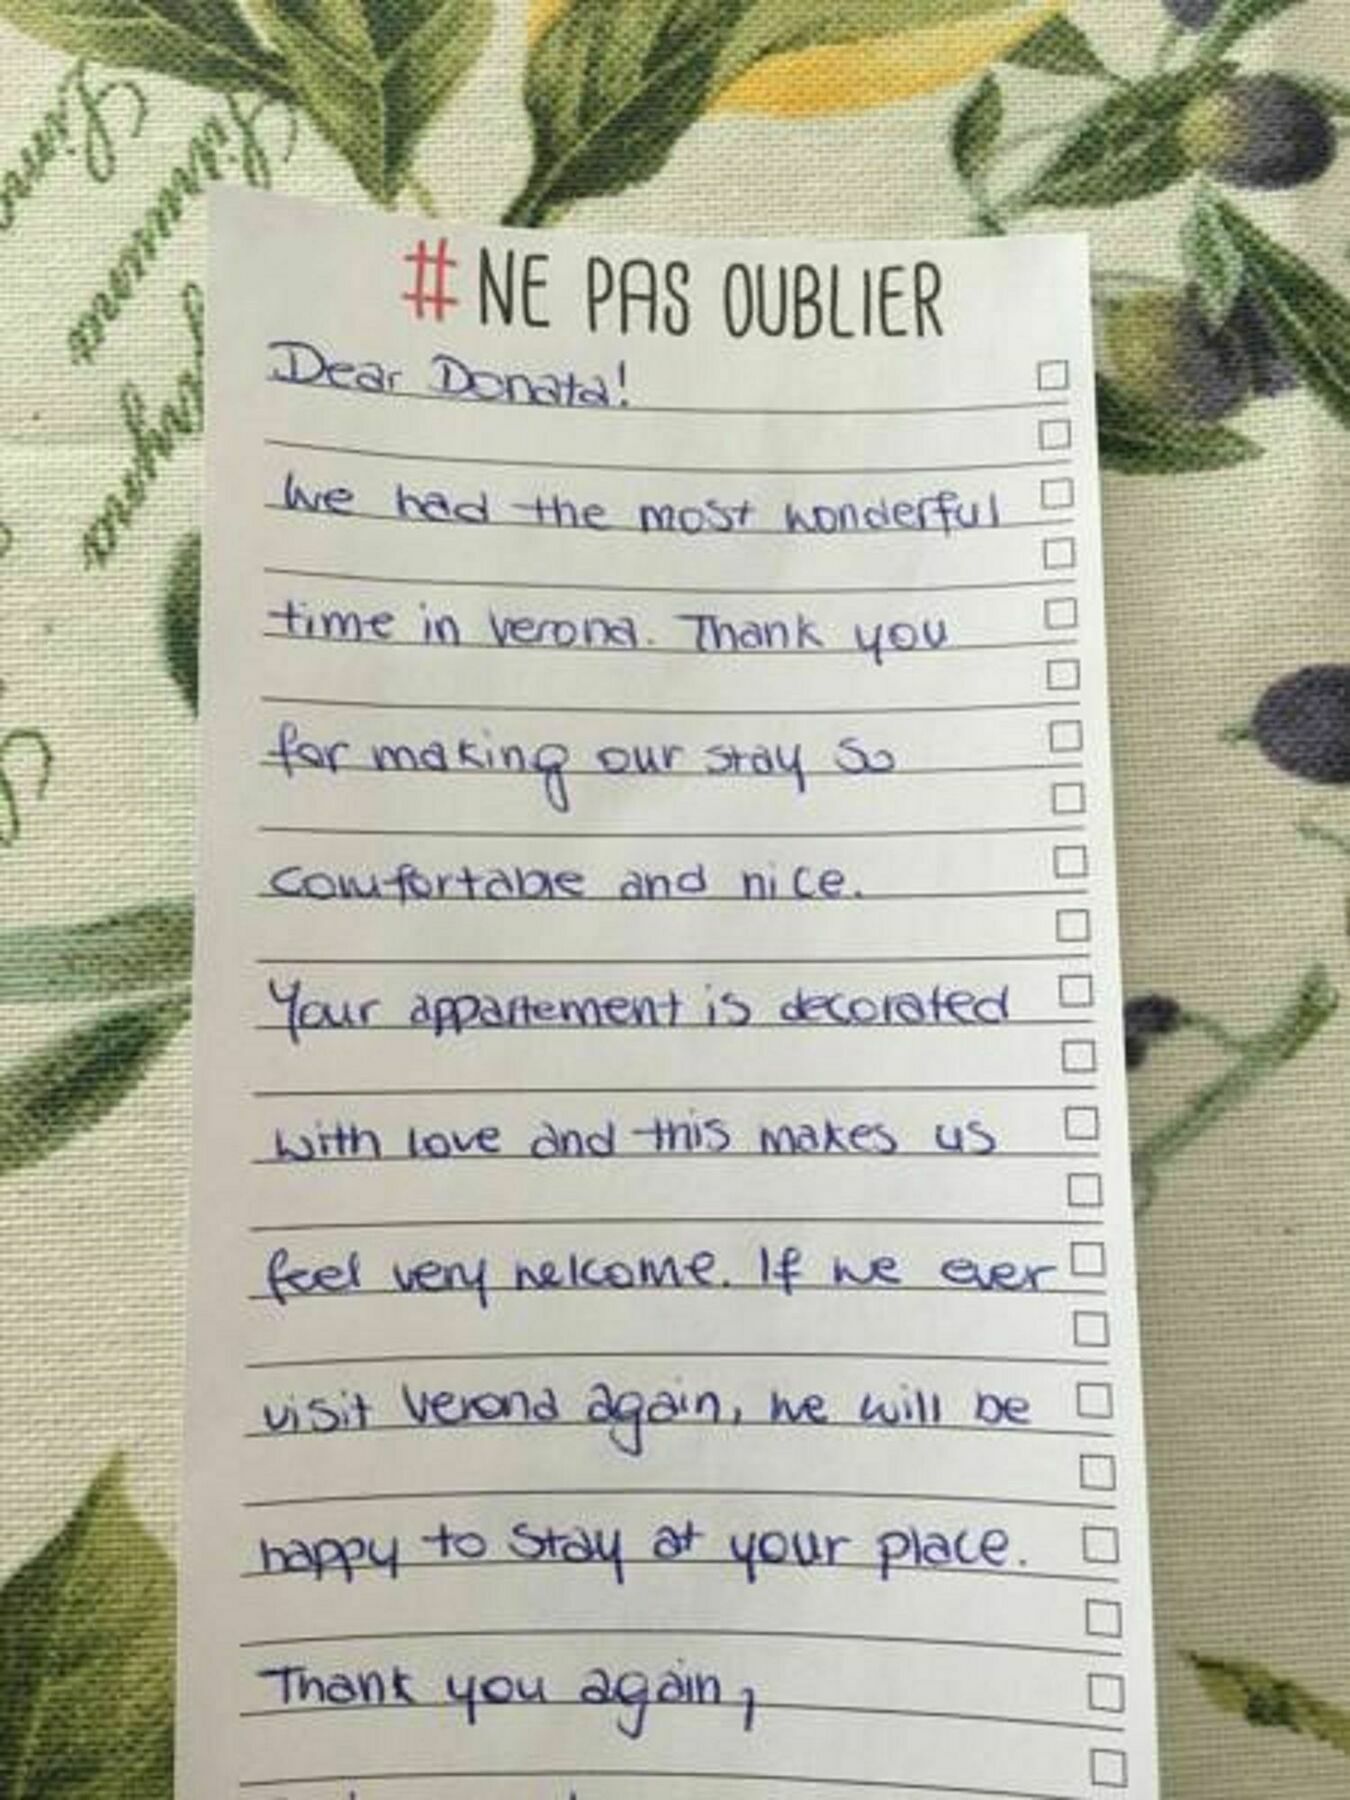 #NE PAS OUBLIER
Dear Donata!
We had the most wonderful
time in Verona. Thank you
for making our stay so
comfortable and nice.
Your appartement is decorated
with love and this makes us
feel very welcome. If we ever
visit Verona again, we will be
happy to stay at your place.
Thank you again,